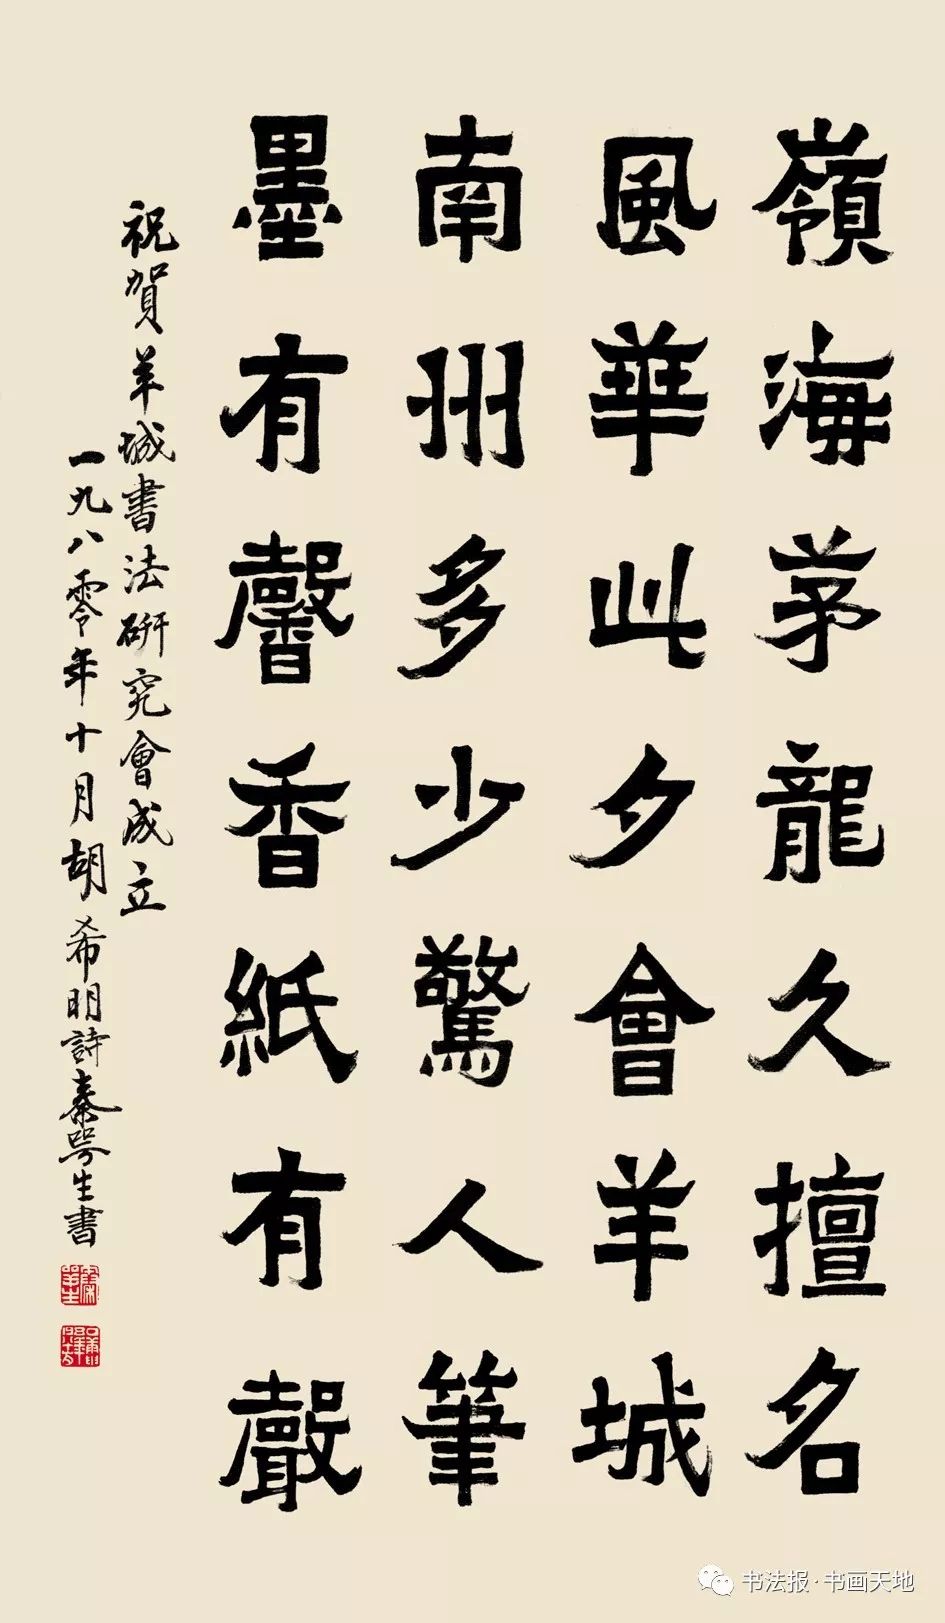 嶺海茅龍久擅名
風華此夕會羊城
南州多少驚人筆
墨有馨香紙有聲
祝賀羊城書法研究會成立
一九八零年十月胡希明詩秦咢生書
书法报·书画天地